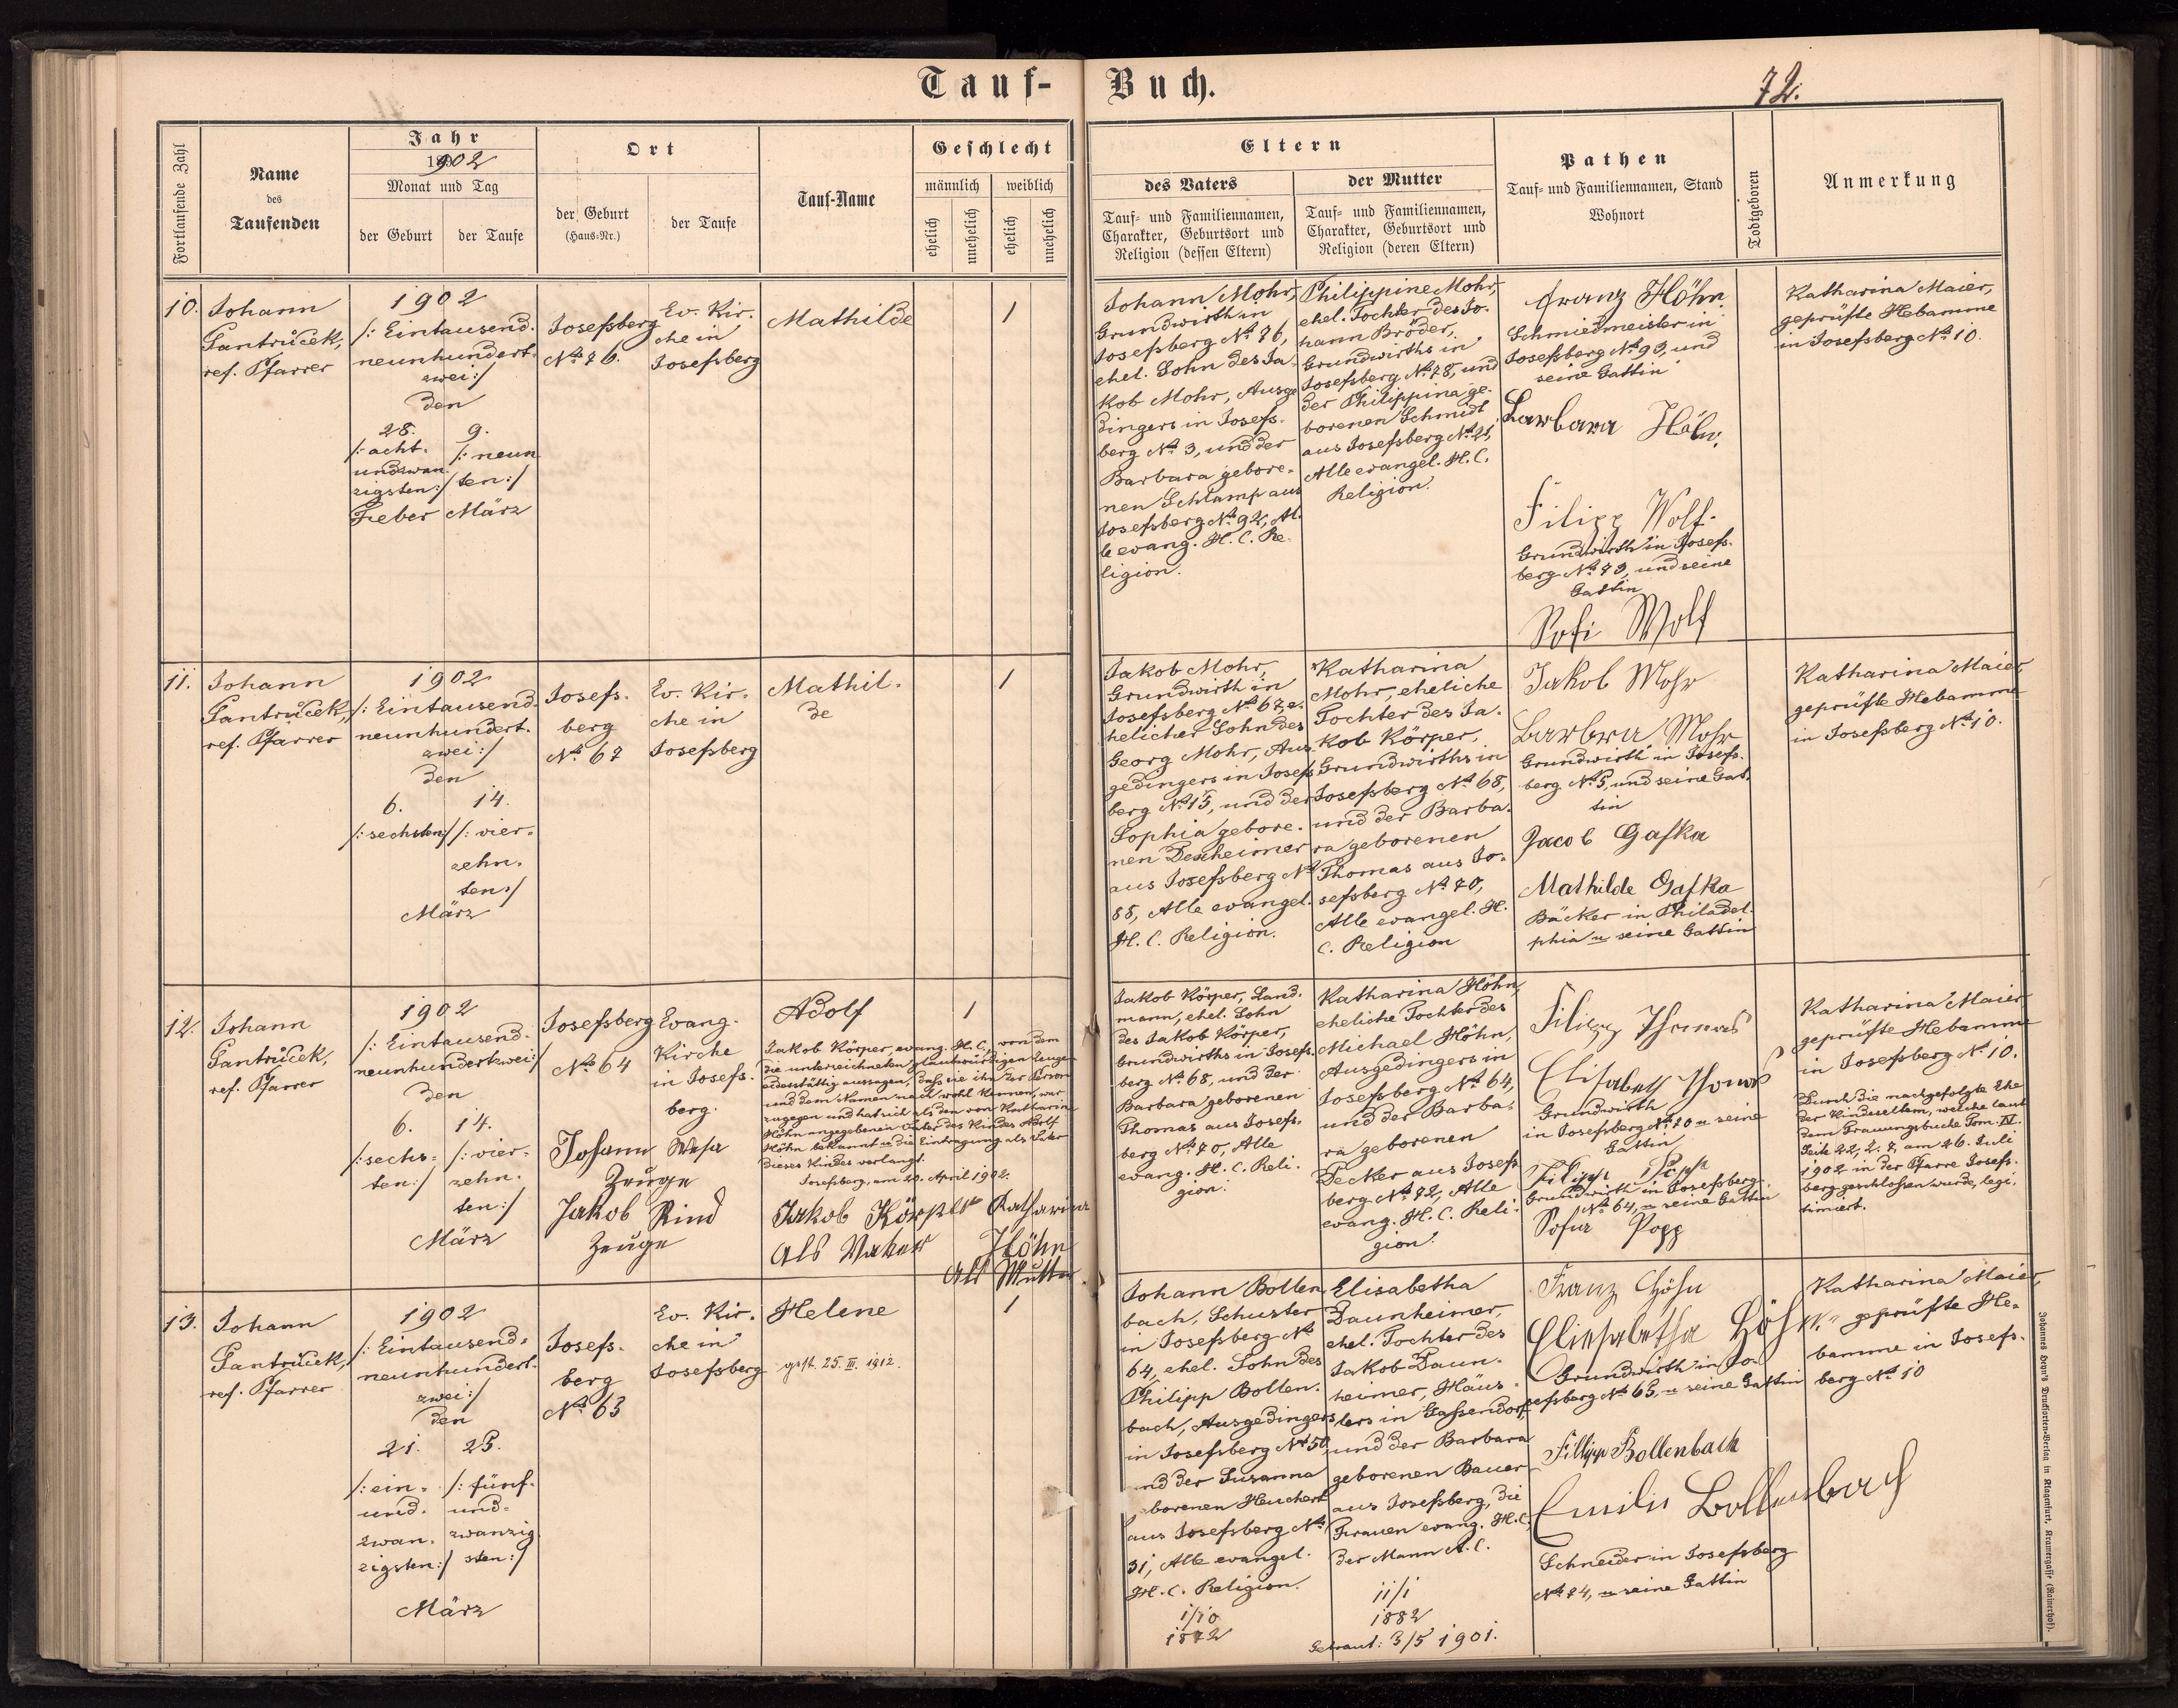 Tauf-Buch.
72.
Fortlaufende Zahl
Name
des
Taufenden
Jahr
1902
Monat und Tag
der Geburt
der Taufe
Ort
der Geburt
(Haus-Nr.)
der Taufe
Tauf-Name
Geschlecht
männlich
weiblich
ehelich
unehelich
ehelich
unehelich
Eltern
des Vaters
Tauf- und Familiennamen,
Charakter, Geburtsort und
Religion (dessen Eltern)
der Mutter
Tauf- und Familiennamen,
Charakter, Geburtsort und
Religion (deren Eltern)
Pathen
Tauf- und Familiennamen, Stand
Wohnort
Todtgeboren
Anmerkung
10.
Johann
Pantruček,
ref. Pfarrer
1902
/: Eintausend-
neunhundert-
zwei :/
den
28.
/: acht-
undzwan-
zigsten :/
Feber
9.
/: neun
ten :/
März
Josefsberg
No 76.
Ev. Kir-
che in
Josefsberg
Mathilde
1
Johann Mohr,
Grundwirth in
Josefsberg No 76,
ehel. Sohn des Ja-
kob Mohr, Ausge
dingers in Josefs-
berg No 3, und der
Barbara gebore-
nen Schlamp aus
Josefsberg No 92, Al-
le evang. H. C. Re-
ligion.
Philippine Mohr,
ehel. Tochter des Jo-
hann Bröder,
Grundwirths in
Josefsberg No 78, und
der Philippina ge-
borenen Schmidt
aus Josefsberg No 21,
Alle evangel. H. C.
Religion.
Franz Höhn
Schmiedmeister in
Josefsberg No 93, und
seine Gattin
Barbara Höhn.
Filipp Wolf.
Grundwirth in Josefs-
berg No 73, und seine
Gattin
Sofi Wolf
Katharina Maier,
geprüfte Hebamme
in Josefsberg No 10.
11.
Johann
Pantruček,
ref. Pfarrer
1902
/: Eintausend-
neunhundert-
zwei :/
den
6.
/: sechsten :/
14.
/: vier-
zehn-
ten :/
März
Josefs-
berg
No 67
Ev. Kir-
che in
Josefsberg
Mathil-
de
1
Jakob Mohr,
Grundwirth in
Josefsberg No 67, e-
helicher Sohn des
Georg Mohr, Aus-
gedingers in Josefs
berg No 15, und der
Sophia gebore-
nen Dexheimer
aus Josefsberg No
88, Alle evangel.
H. C. Religion.
Katharina
Mohr, eheliche
Tochter des Ja-
kob Körper,
Grundwirths in
Josefsberg No 68,
und der Barba-
ra geborenen
Thomas aus Jo-
sefsberg No 70,
Alle evangel. H.
C. Religion
Jakob Mohr
Barbra Mohr
Grundwirth in Josefs-
berg No 5, und seine Gat-
tin
Jacob Gafka
Mathilde Gafka
Bäcker in Philadel-
phia u seine Gattin
Katharina Maier,
geprüfte Hebamme
in Josefsberg No 10.
12.
Johann
Pantruček,
ref. Pfarrer
1902
/: Eintausend-
neunhundertzwei :/
den
6.
/: sechs-
ten :/
14.
/: vier-
zehn-
ten :/
März
Josefsberg
No 64
Evang.
Kirche
in Josefs-
berg.
Johann Wefa
Zeuge
Jakob Rind
Zeuge
Adolf
1
Jakob Körper, evang. H. C., von dem
die unterzeichneten glaubwürdigen Zeugen
eidesstättig aussagen, dass sie ihn der Person
und dem Namen nach wohl kennen, war
zugegen und hat sich als den von Katharina
Höhn angegebenen Vater des Kindes Adolf
Höhn bekannt u die Eintragung als Vater
dieses Kindes verlangt.
Josefsberg, am 20. April 1902.
Jakob Körper
Als Vater
Katharina
Höhn
Als Mutter
Jakob Körper, Land-
mann, ehel. Sohn
des Jakob Körper,
Grundwirths in Josefs-
berg No 68, und der
Barbara geborenen
Thomas aus Josefs-
berg No 70, Alle
evang. H. C. Reli-
gion.
Katharina Höhn,
eheliche Tochter des
Michael Höhn,
Ausgedingers in
Josefsberg No 64,
und der Barba-
ra geborenen
Decker aus Josefs
berg No 82, Alle
evang. H. C. Reli-
gion.
Filipp Thomas
Elisabeth Thomas
Grundwirth
in Josefsberg No 70 u seine
Gattin
Filipp Popp
Grundwirth in Josefsberg
No 64, u seine Gattin
Sofia Popp
Katharina Maier
geprüfte Hebamme
in Josefsberg No 10.
Durch die nachgefolgte Ehe
der Kindeseltern, welche laut
dem Trauungsbuche Tom. IV.
Seite 22, Z. 7, am 26. Juli
1902 in der Pfarre Josefs-
berg geschlossen wurde, legi-
timiert.
13.
Johann
Pantruček,
ref. Pfarrer
1902
/: Eintausend-
neunhundert-
zwei :/
den
21.
/: ein-
und-
zwan-
zigsten :/
25.
/: fünf-
und-
zwanzig
sten :/
März
Josefs-
berg
No 63
Ev. Kir-
che in
Josefsberg
Helene
gest. 25. III. 1912.
1
Johann Bollen
bach, Schuster
in Josefsberg No
64, ehel. Sohn des
Philipp Bollen-
bach, Ausgedingers
in Josefsberg No 50
und der Susanna
geborenen Heuchert
aus Josefsberg No
31, Alle evangel.
H. C. Religion.
1/10
1872
Elisabetha
Daunheimer,
ehel. Tochter des
Jakob Daun-
heimer, Häus-
lers in Gassendorf,
und der Barbara
geborenen Bauer
aus Josefsberg, die
Frauen evang. H. C.
der Mann A. C.
11/1
1882
Getraut: 3/5 1901.
Franz Höhn
Eliesabetha Höhn
Grundwirth in Jo-
sefsberg No 65, u seine Gattin
Fillipp Bollenbach
Emilie Bollenbach
Schneider in Josefsberg
No 84, u seine Gattin
Katharina Maier,
geprüfte He-
bamme in Josefs-
berg No 10
Johannes Heyn's Drucksorten-Verlag in Klagenfurt, Kramergasse (Rainerhof).